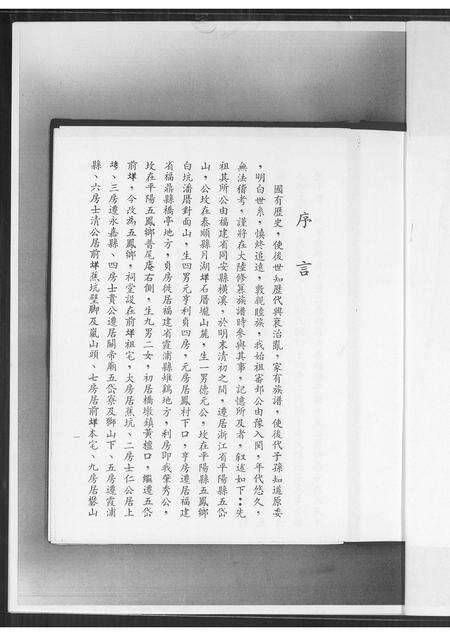 序言
國有歷史，使後世知歷代興衰治亂，家有族譜，使後代子孫知道原委
，明白世系，慎終追遠，敦親睦族，我始祖審邽公由豫入閩，年代悠久，
無法稽考，謹將在大陸修纂族譜時參與其事，記憶所及者，叙述如下：先
祖其所公由福建省同安縣橫溪，於明末清初之間，遷居浙江省平陽縣五岱
山，公坟在泰順縣月湖垟石厝壠山麓，生一男德元公，坟在平陽縣五鳳鄉
白坑潘厝對面山，生四男元亨利貞四房，元房居鳳村下口，亨房遷居福建
省福鼎縣橋亭地方，貞房徙居福建省霞浦縣雉鷄地方，利房即我肇秀公，
坟在平陽五鳳鄉普尾庵右側，生九男二女，初居橋墩鎮黃檀口，繼遷五岱
前垟，今改為五鳳鄉，祠堂設在前垟祖宅，大房居蕉坑、二房士仁公居上
垮、三房遷永嘉縣、四房士貴公遷居關帝廟五岱寮及獅山下、五房遷霞浦
縣、六房士清公居前垟蕉坑壁脚及嵐山頭、七房居前垟本宅、九房居磐山